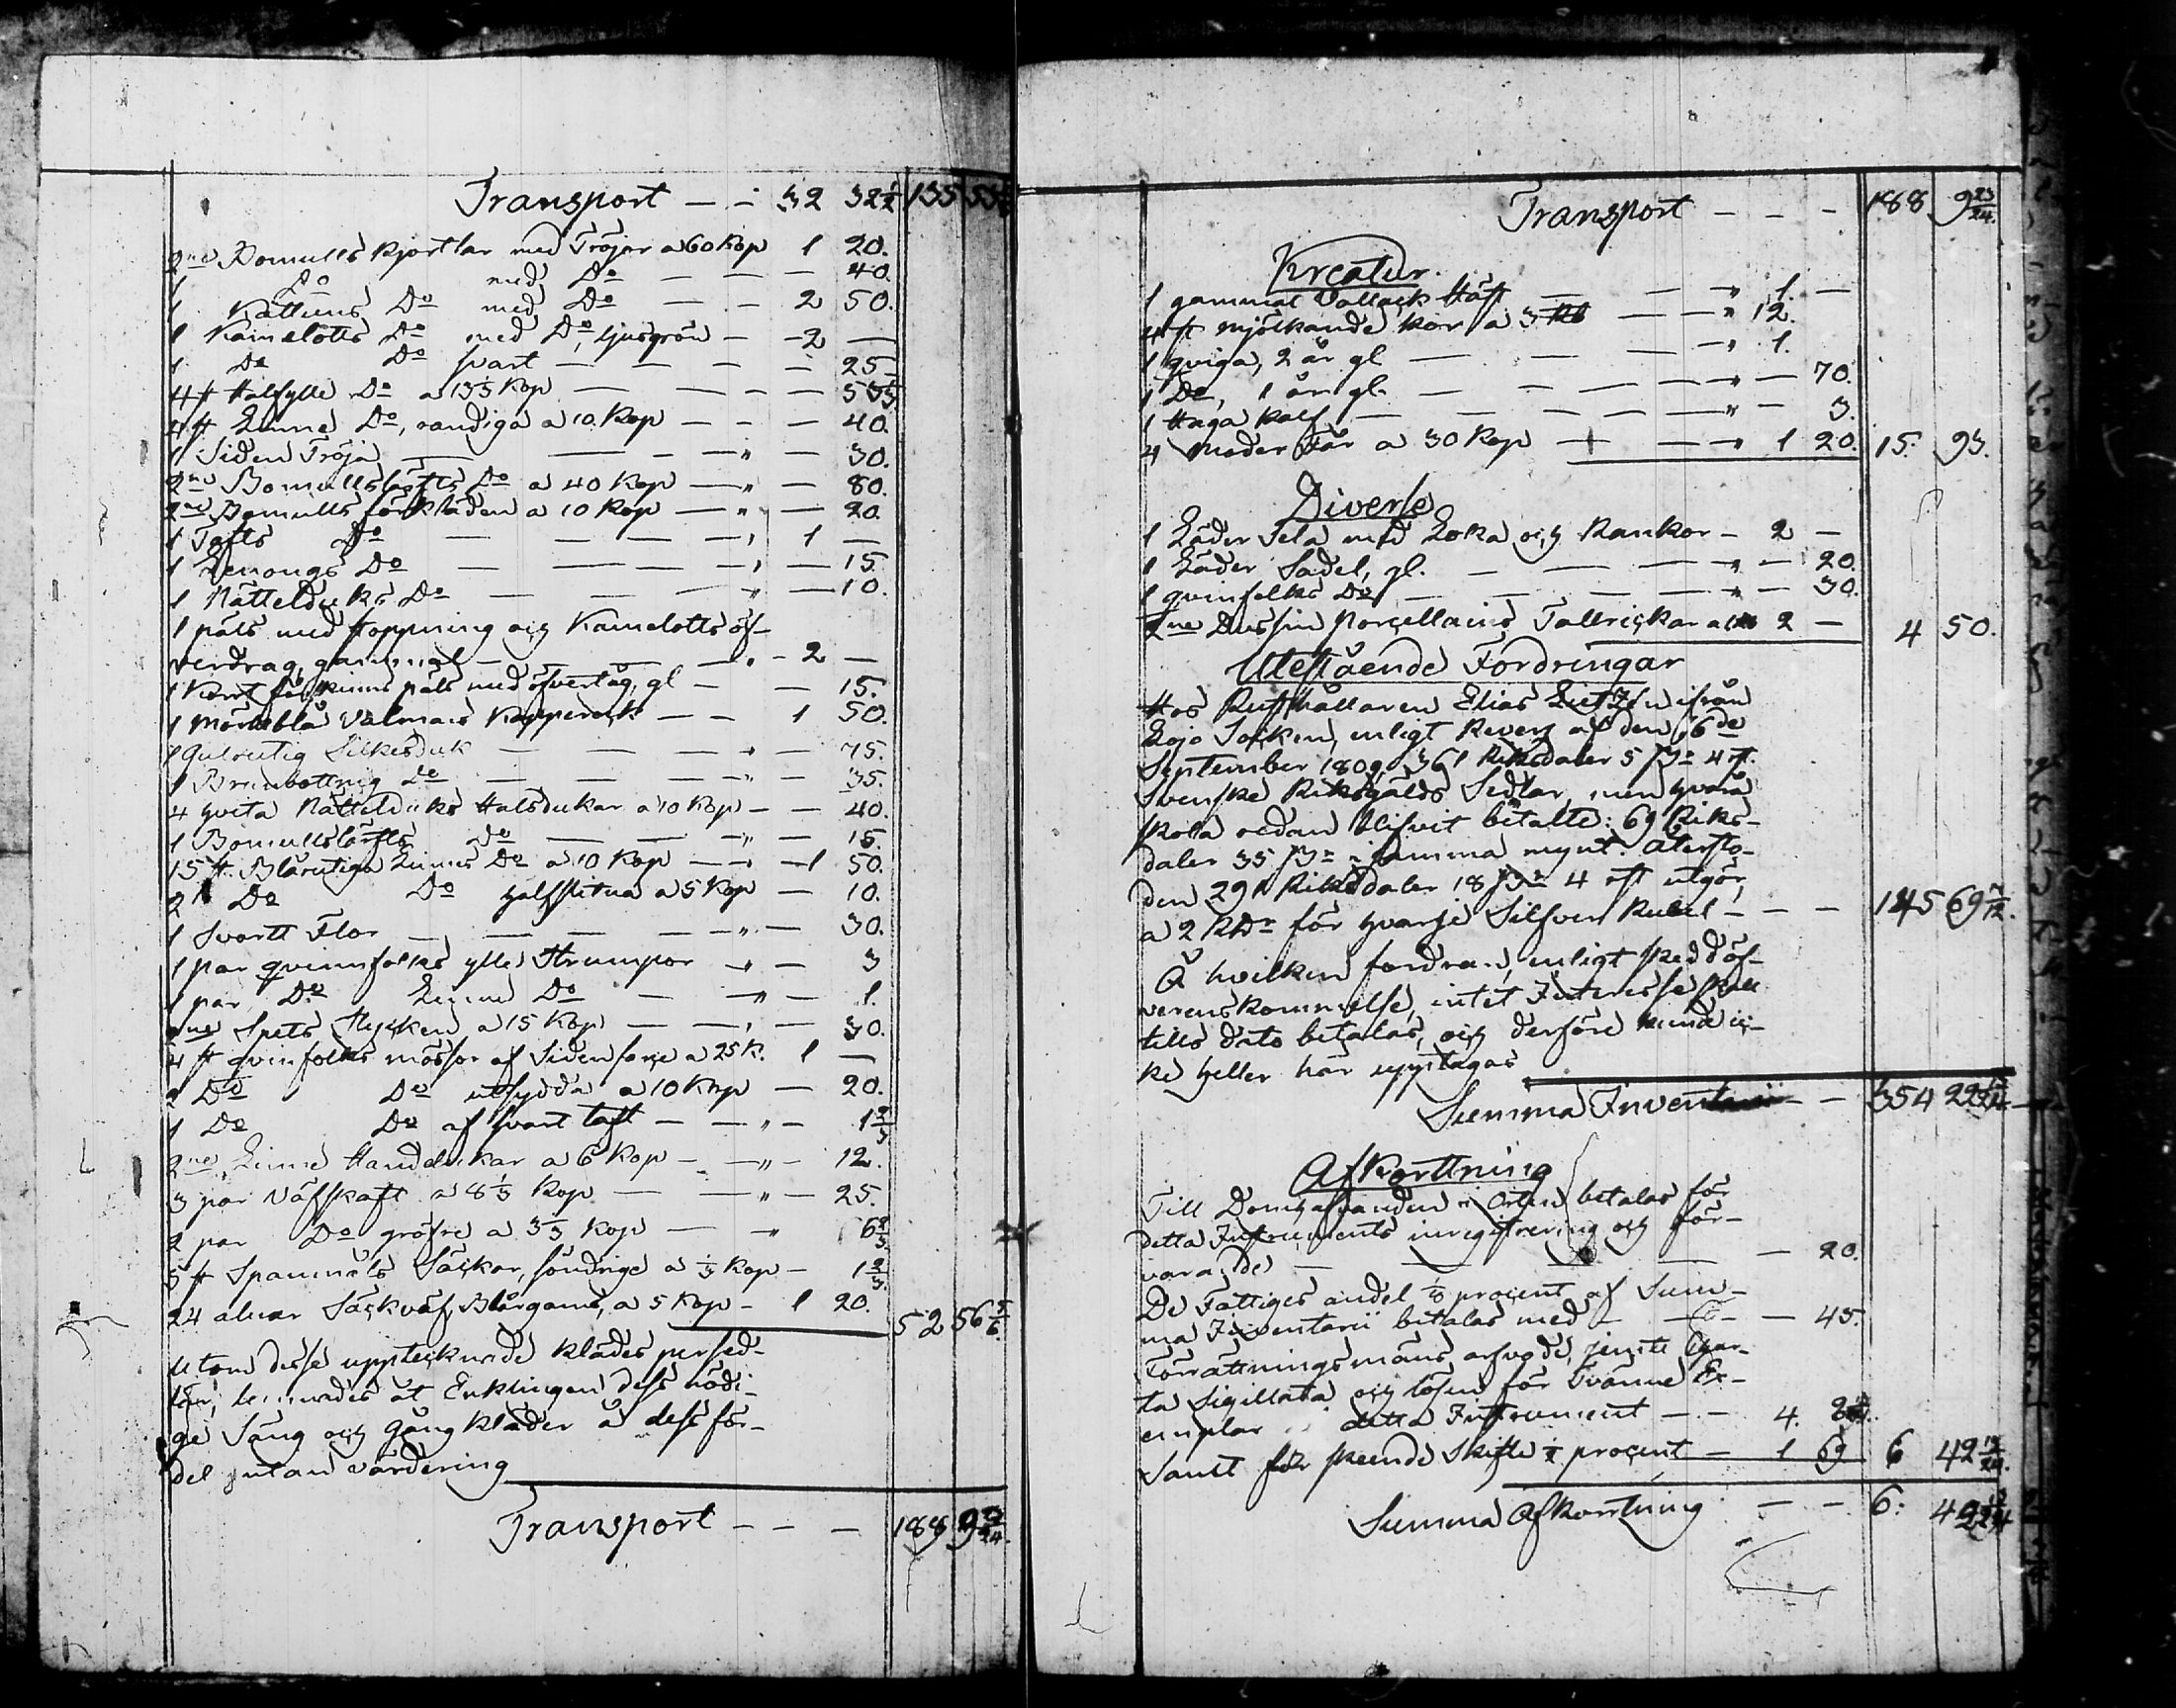 Transport — - 32 32½ 135 53
2ne Bomulls kjortlar med Tröjor a 60 Kop 1 20.
1 Do med Do — — — 40.
1 Kattuns Do med Do — - 2 50.
1 Kamelotts Do med Do, ljusgrön - -2 —
1 Do Do svart — — — — 25
4 st Halfylle Do a 13⅓ Kop — — — — 53⅓
4 st Linne Do, randiga a 10 Kop — - — 40.
1 Siden Tröja — — - — " — 30.
2ne Bomullslärfts Do a 40 Kop — " — 80.
2ne Bomulls förkläden a 10 Kop — " — 20.
1 Tafts Do — — — — " 1 —
1 Do — — — — " — 15.
1 Nättelduks Do — — — " — 10.
1 päls med stoppning och Kamelotts öf-
verdrag, gammal — — — " - 2 —
1 Kort fårskinns päls med öfvertåg, gl — — 15.
1 Mörkblå Valmars Kapprock — — 1 50.
1 Gulrutig Silkesduk — — — " — 75.
1 Brunbottnig Do — — — " — 35.
4 hvita Nättelduks Halsdukar a 10 Kop — — 40.
1 Bomullslärfts Do — — " — 15.
15 st. Blårutiga Linne Do a 10 Kop — " — 1 50.
2 Do Do halfslitna a 5 Kop — 10.
1 Svartt Flor — — — — " — 30.
1 par qvinnfolks ylle Strumpor — " — 3
1 par Do Linne Do — — " — 1.
2ne Spets Stycken a 15 Kop — — " — 30.
4 st qvinfolks mössor af Siden a 25 K. 1 —
2 Do Do utsydda a 10 Kop — 20.
1 Do Do af svart taft — — " — 1⅔
2ne Linne Handdukar a 6 Kop — — " — 12.
3 par Väfskaft a 8⅓ Kop — — " — 25.
2 par Do gröfre a 3⅓ Kop — " 6⅔
5 st Spanmåls Säckar, söndrige a ⅓ Kop — 1⅔
24 alnar Säckväf, Blårgarns, a 5 Kop - 1 20. 52 56⅚
Utom desse upptecknade klädes persed-
lar, lemnades åt Enklingen dess nödi-
ge Säng och Gång kläder å dess för-
del utan värdering
Transport — — — 188 9 23/24.
Transport — — — 188 9 23/24.
Kreatur.
1 gammal Vallack Häst — — " 1. —
4 st mjölkande kor a 3 Rb — — " 12.
1 qviga, 2 år gl — — — " 1.
1 Do, 1 år gl. — — — — " — 70.
1 kalf — — — — — " — 3.
4 Moder Får a 30 Kop — — " 1 20. 15. 93.
Diverse
1 Läder Sela med Loka och Rankor - 2 —
1 Läder Sadel, gl. — — — " — 20.
1 qvinfolks Do — — — " — 30.
2ne Dussin Porcellains Tallrickar a 2 — 4 50.
Utestående Fordringar
Hos Rusthållaren Elias ifrån
Lojo Socken, enligt Revers af den 6de
September 1809, 361 Riksdaler 5 s 4 rst.
Svenske Riksgälds Sedlar, men hvarå
skola redan blifvit betalte: 69 Riks-
daler 35 s i samma mynt. Återsto-
den 291 Riksdaler 18 s 4 rst utgör,
a 2 RDr för hvarje Silfver Rubel - — — 145 69 7/12.
Å hvilken fordran, enligt skedd öf-
verenskommelse, intet Interesse skall
tills dato betalas, och derföre kund ic-
ke heller här upptagas
Summa Inventarii — — 354 22 13/24
Afkorttning
Till Domhafvanden i Orten betalas för
detta Instruments inregistrering och för-
varande — — — — — 20.
De Fattiges andel ⅛ procent af Sum-
ma Inventarii betalas med — — — 45.
Förrättningsmäns arfvode, jemte Char-
ta Sigillata och lösen för Tvänne Ex-
emplar detta Instrument — — 4.
Samt för skeende Skifte ½ procent — 1 69 6 42 13/24.
Summa Afkorttning — — 6. 42 13/24